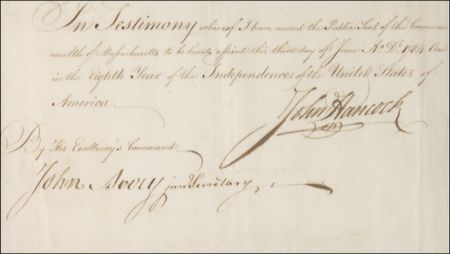 In Testimony whereof I have caused the Public Seal of the Common-
wealth of Massachusetts to be hereto affixed this third day of June A.D. 1784 And
in the Eighth Year of the Independence of the United States of
America
John Hancock
By His Excellency's Command
John Avery junr Secretary